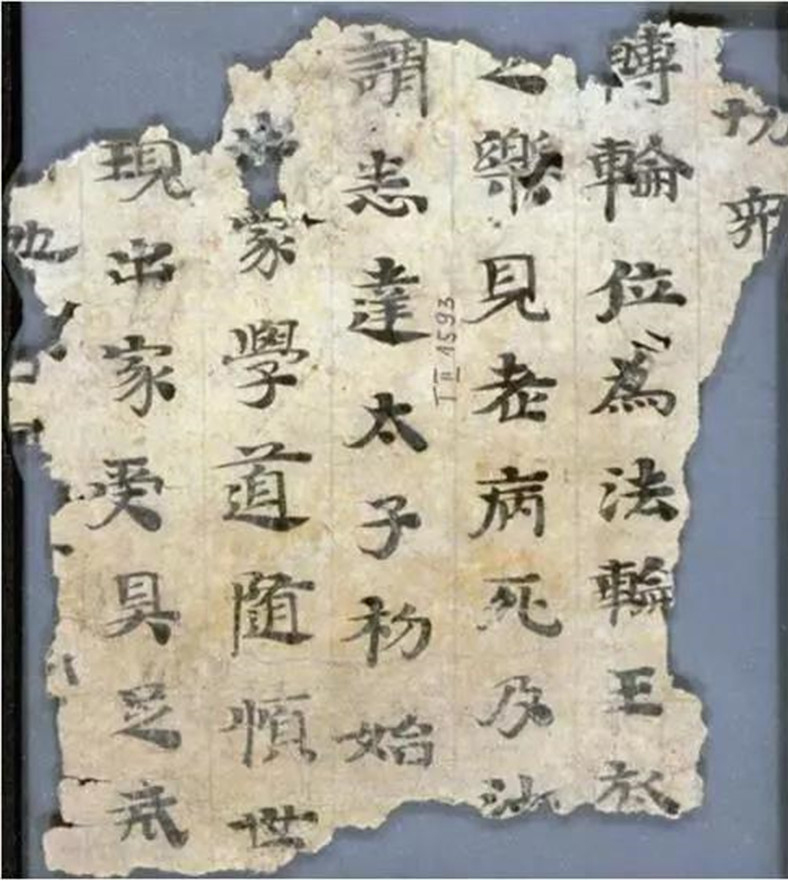 切
轉輪位為法輪王於
樂見老病死及沙
謂悉達太子初始
家學道随順世
現出家受具足戒
T II 1593